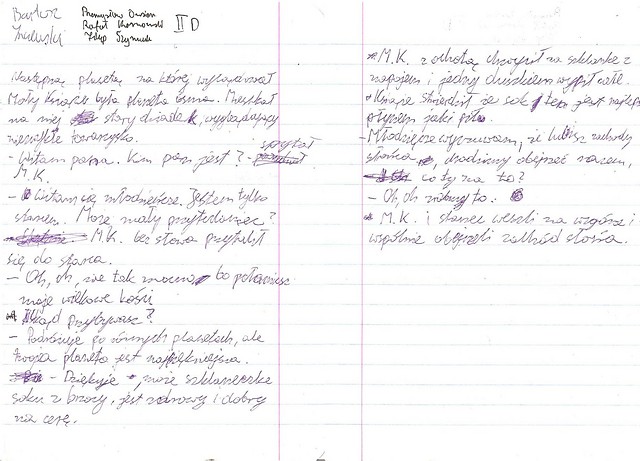 Bartosz
Przemysław
Rafał
Filip Szymcz
II D
Następną planetą na której wylądował
Mały Książę była planeta ósma. Mieszkał
na niej stary dziadek, wyglądający
niezwykle towarzysko.
- Witam pana. Kim pan jest? - spytał
M.K.
- Witam cię młodzieńcze. Jestem tylko
starcem. Może mały przytulaniec?
M.K. bez słowa przytulił
się do starca.
- Oh, oh, nie tak mocno, bo połamiesz
moje wiekowe kości
Skąd przybywasz?
- Podróżuje po różnych planetach, ale
twoja planeta jest najpiękniejsza.
- Dziękuje, może szklaneczke
soku z brzozy, jest zdrowy i dobry
na cerę.
M.K. z ochotą chwycił za szklanke z
napojem i jednym duszkiem wypił całe.
Książe stwierdził że sok ten jest najlepszym
płynem jaki pił.
- Młodzieńcze wyczuwam, że lubisz zachody
słońca, chodźmy obejrzeć razem,
co ty na to?
- Oh, oh to.
M.K. i starzec weszli na wzgórze i
wspólnie obejrzeli zachód słońca.